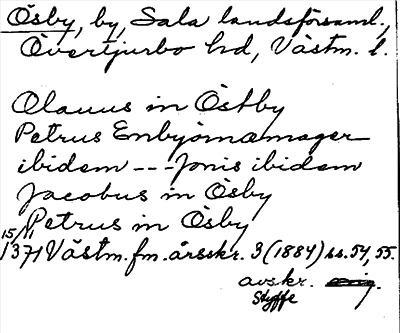 Ösby, by, Sala landsförsaml.,
Övertjurbo hd, Västm. l.
Olauus in Östby
Petrus Enbyörnæmager
ibidem --- Jonis ibidem
Jacobus in Ösby
Petrus in Ösby
15/11
1371 Västm. fm. årsskr. 3 (1884) ss. 54, 55.
avskr. orig.
Styffe